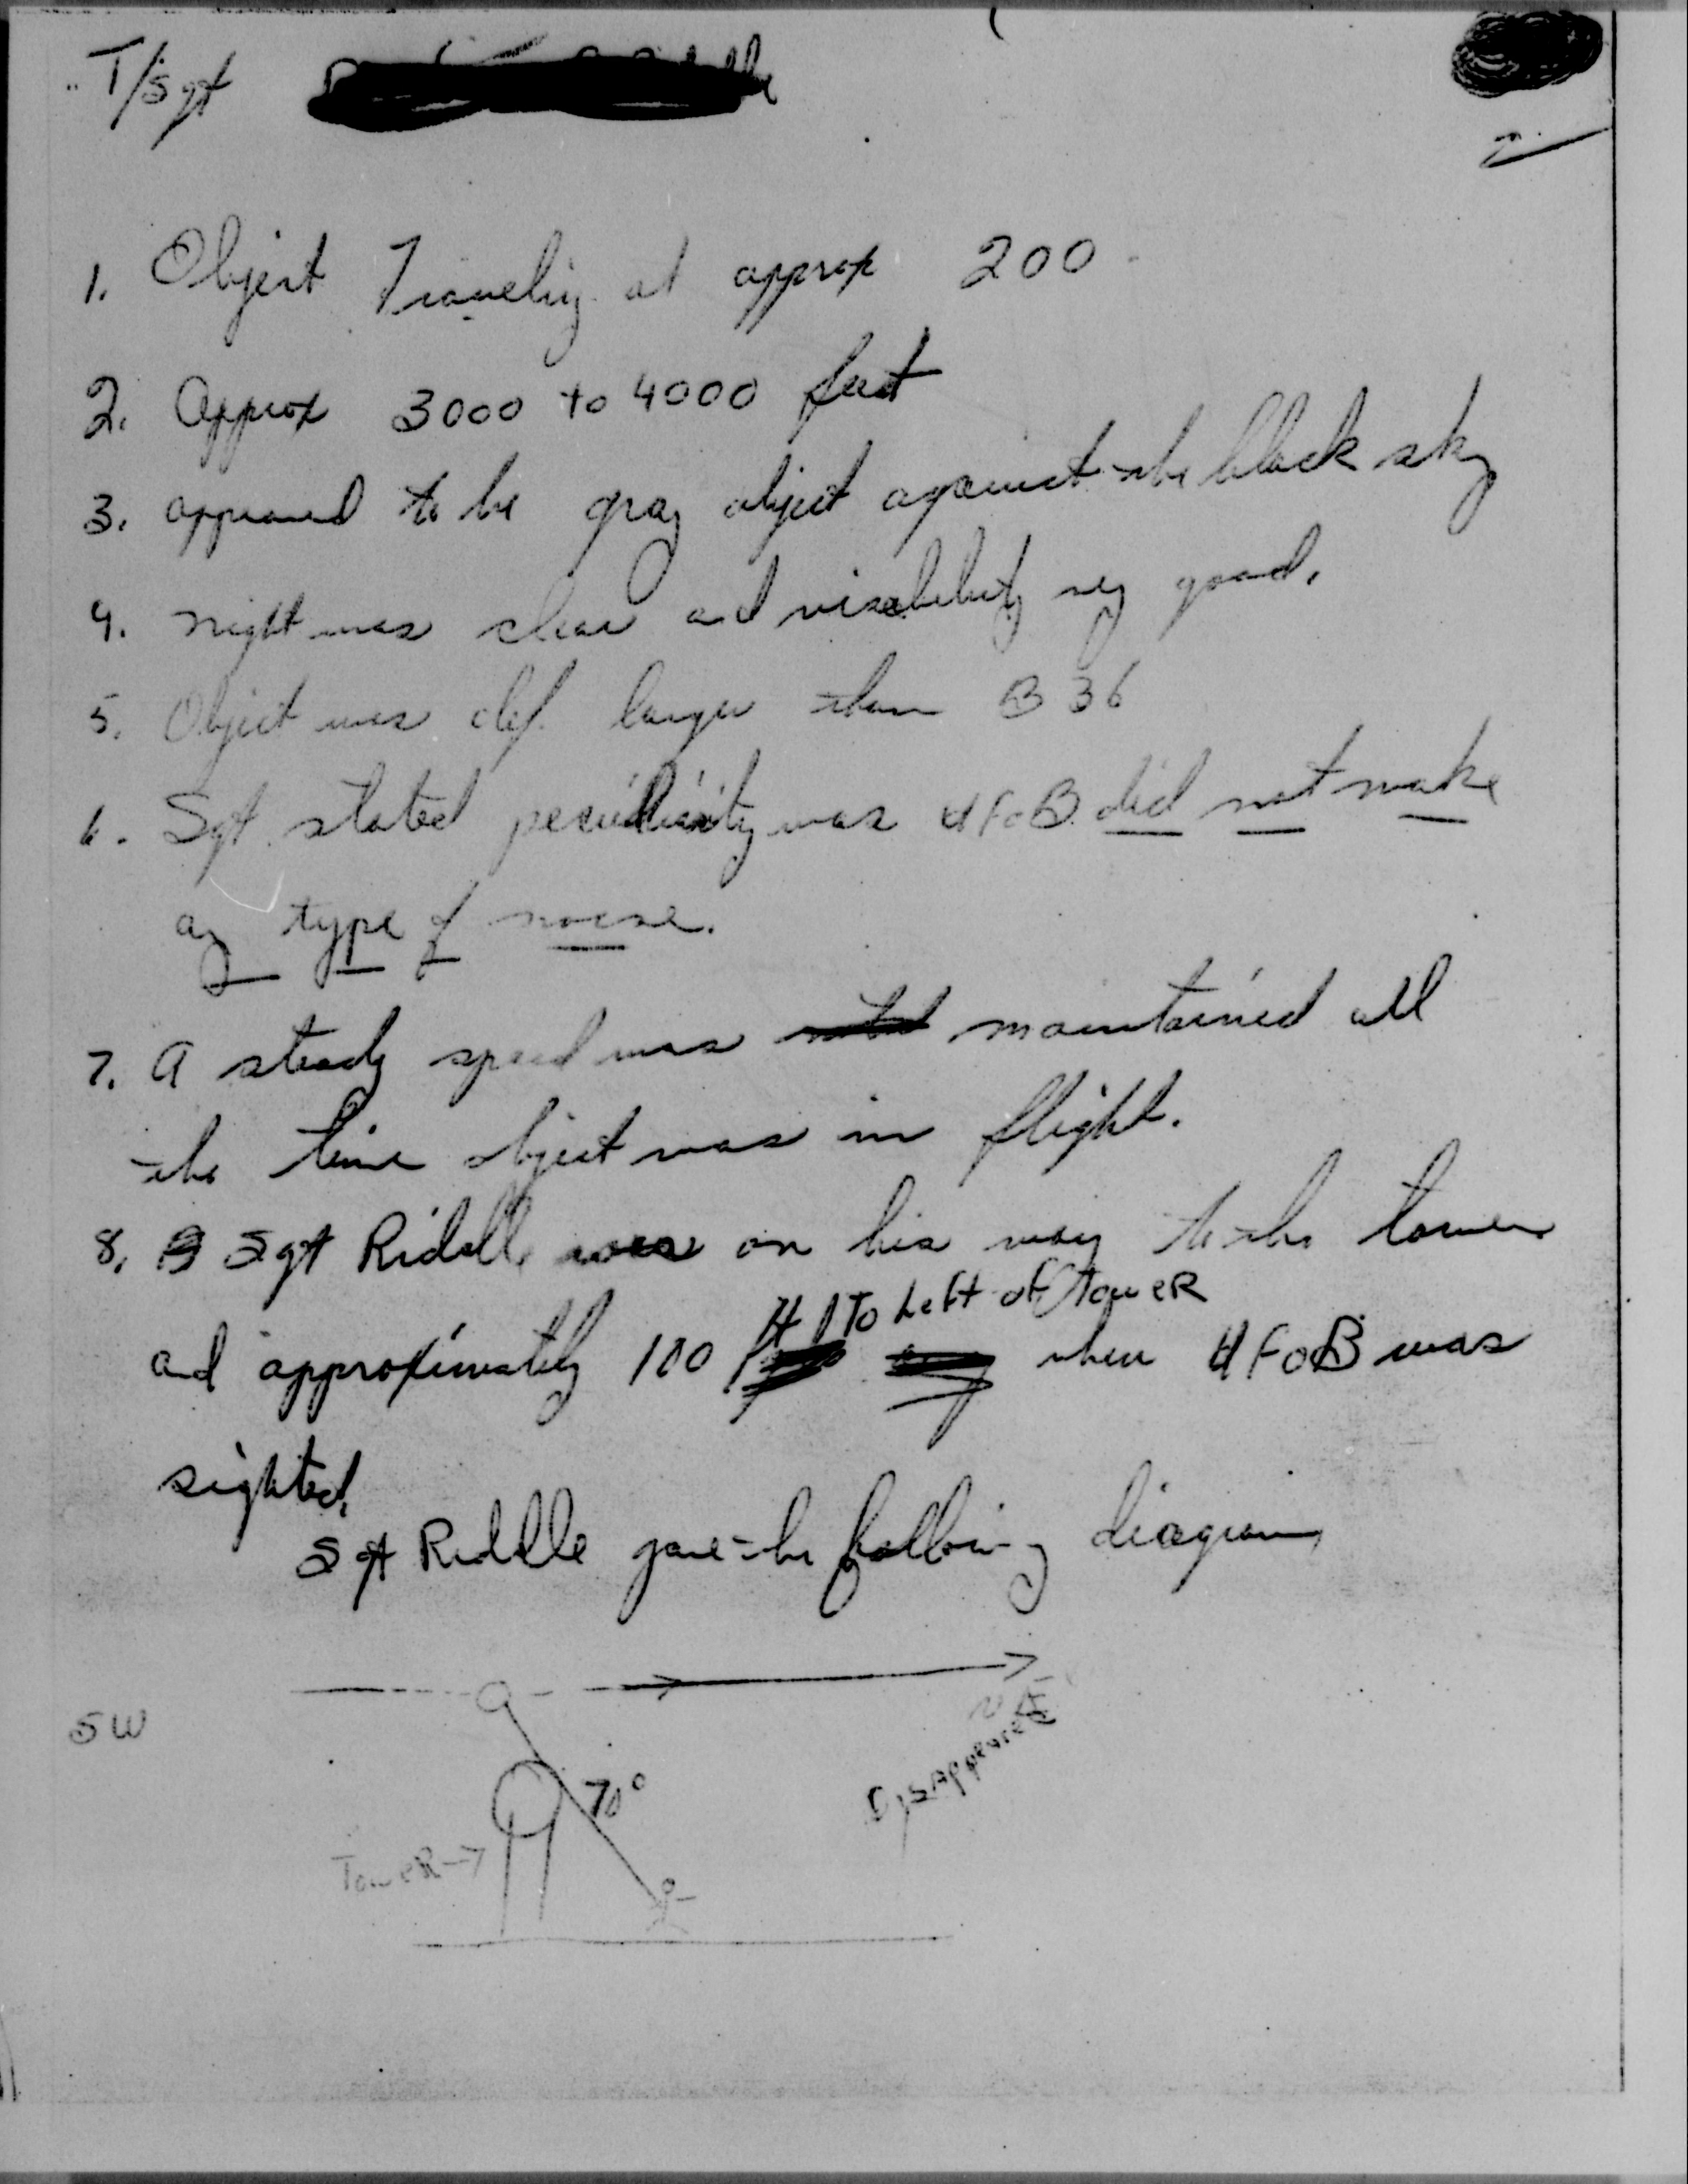 T/Sgt
2
1. Object Traveling at approx 200
2. Approx 3000 to 4000 feet
3. appeared to be gray object against the black sky
4. night was clear and visabibity very good.
5. Object was def. larger than B 36
6. Sgt. stated peculiarity was UFOB did not make
any type of noise.
7. A steady speed was maintained all
the time object was in flight.
8. Sgt Riddle was on his way to the tower
ft To Left of Tower
and approximately 100 when UFOB was
sighted.
Sgt Riddle gave the following diagram
NE
SW
Disappeared
70°
Tower →